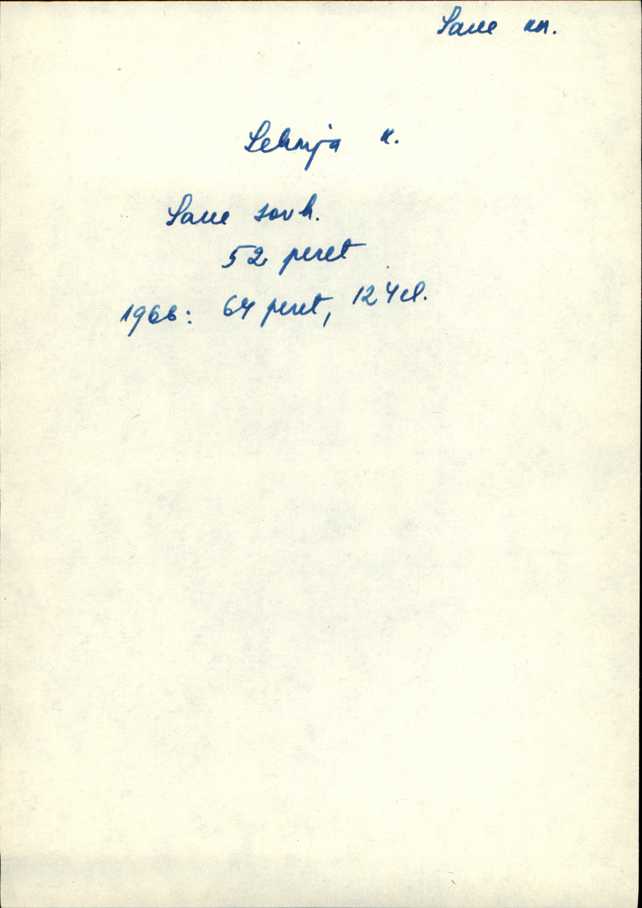 Saue kn.
Lehmja k.
Saue sovh.
52 peret
1966: 64 peret, 124 el.